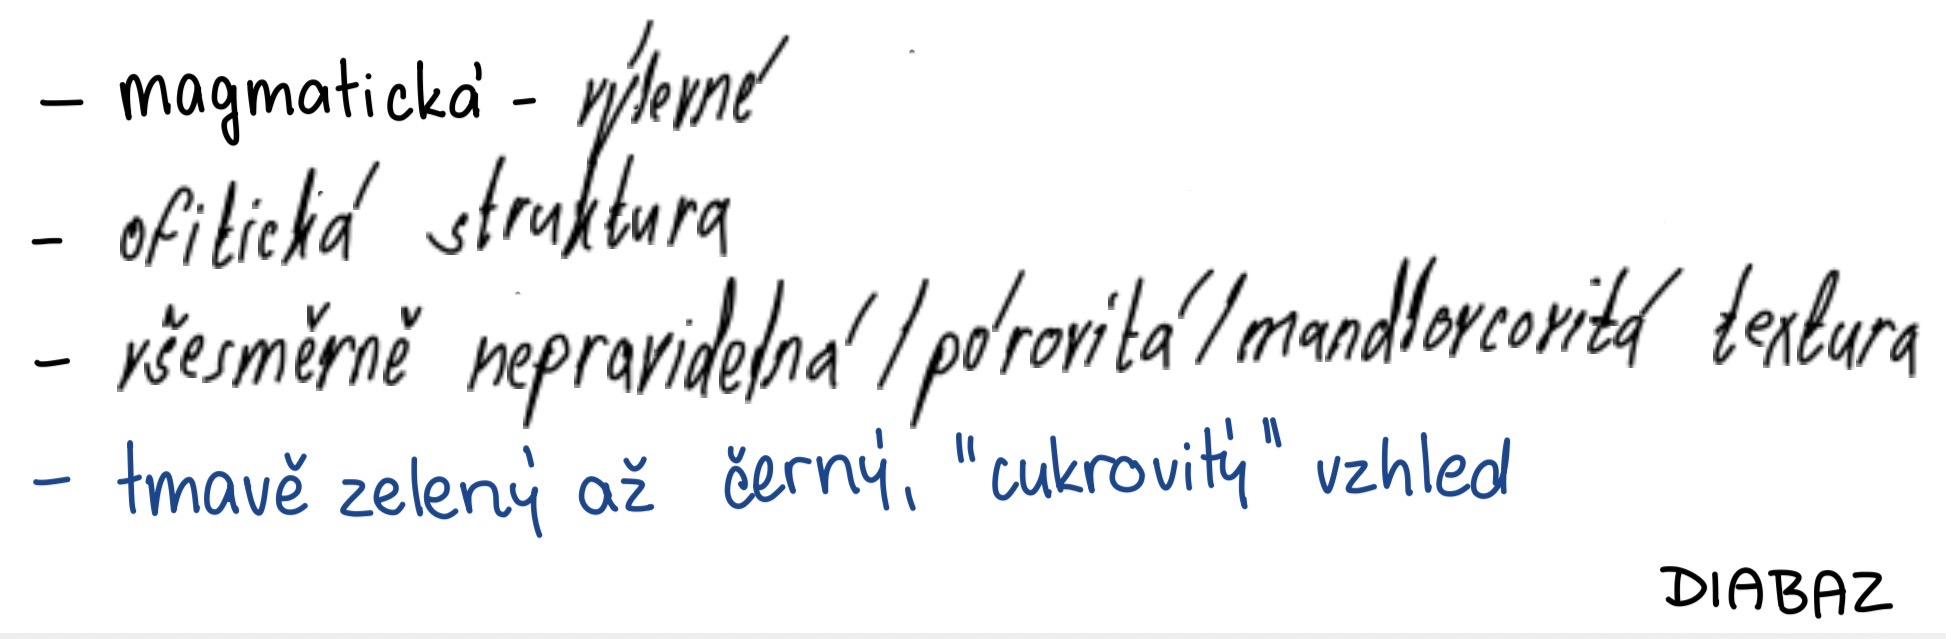 - magmatická - výlevné
- ofitická struktura
- všesměrně nepravidelná / pórovitá / mandlovcovitá textura
- tmavě zelený až černý, "cukrovitý" vzhled
DIABAZ